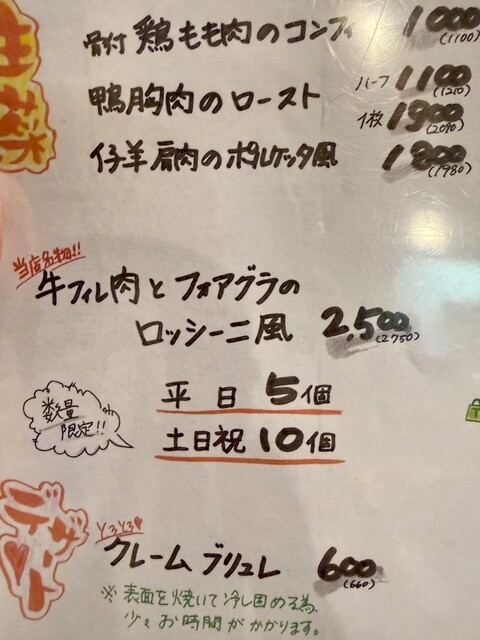 主菜
骨付 鶏もも肉のコンフィ 1000 (1100)
鴨胸肉のロースト ハーフ 1100 (1210)
1枚 1900 (2090)
仔羊肩肉のポルケッタ風 1800 (1980)
当店名物!!
牛フィレ肉とフォアグラの
ロッシーニ風 2,500 (2750)
数量
限定!!
平日 5個
土日祝 10個
デザート
とろとろ
クレームブリュレ 600 (660)
※表面を焼いて冷し固める為、
少々お時間がかかります。